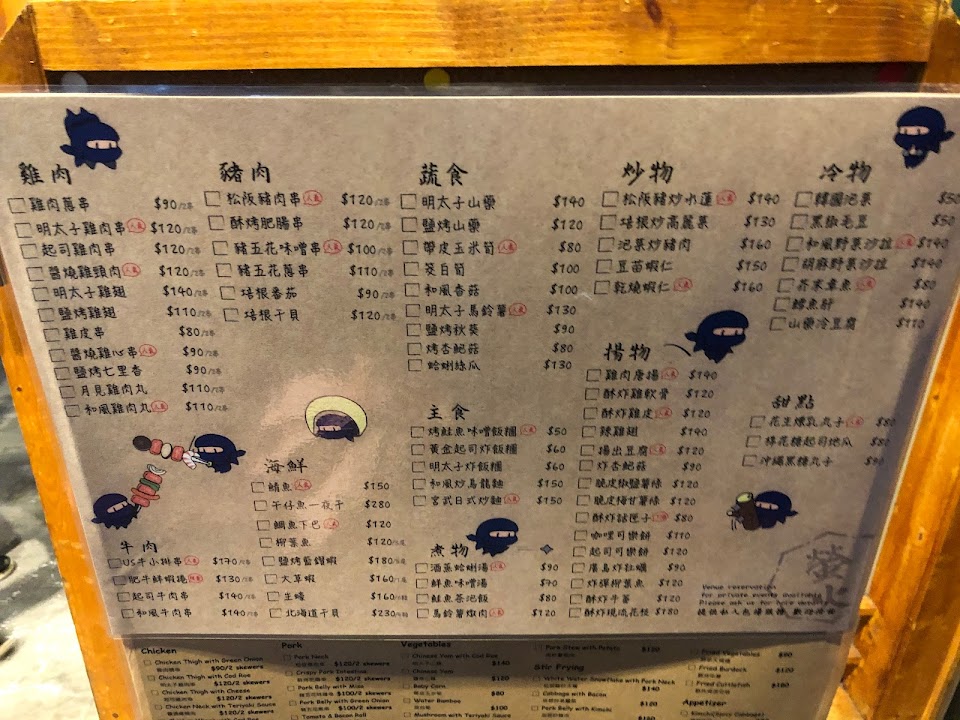 雞肉
雞肉蔥串 $90/2串
明太子雞肉串 人氣 $120/2串
起司雞肉串 $120/2串
醬燒雞頸肉 人氣 $120/2串
明太子雞翅 $140/2串
鹽烤雞翅 $110/2串
雞皮串 $80/2串
醬燒雞心串 人氣 $90/2串
鹽烤七里香 $90/2串
月見雞肉丸 $110/2串
和風雞肉丸 人氣 $110/2串
牛肉
US牛小排串 人氣 $170/2串
肥牛鮮蝦捲 $130/2串
起司牛肉串 $140/2串
和風牛肉串 $140/2串
豬肉
松阪豬肉串 人氣 $120/2串
酥烤肥腸串 $120/2串
豬五花味噌串 人氣 $100/2串
豬五花蔥串 $110/2串
培根番茄 $90/2串
培根干貝 $120/2串
海鮮
鯖魚 人氣 $150
午仔魚一夜干 $280
鯛魚下巴 人氣 $120
柳葉魚 $120
鹽烤藍鑽蝦 $180
大草蝦 $160
生蠔 $160
北海道干貝 $230
蔬食
明太子山藥 $140
鹽烤山藥 $120
帶皮玉米筍 人氣 $80
茭白筍 $100
和風香菇 $100
明太子馬鈴薯 人氣 $130
鹽烤秋葵 $90
烤杏鮑菇 $80
蛤蜊絲瓜 $130
主食
烤鮭魚味噌飯糰 人氣 $50
黃金起司炸飯糰 $60
明太子炸飯糰 $60
和風炒烏龍麵 $150
宮武日式炒麵 人氣 $150
煮物
酒蒸蛤蜊湯 人氣 $90
鮮魚味噌湯 $70
鮭魚茶泡飯 $80
馬鈴薯燉肉 人氣 $120
炒物
松阪豬炒水蓮 人氣 $140
培根炒高麗菜 $130
泡菜炒豬肉 $160
豆苗蝦仁 $150
乾燒蝦仁 人氣 $160
揚物
雞肉唐揚 人氣 $140
酥炸雞軟骨 $120
酥炸雞皮 人氣 $120
辣雞翅 $140
揚出豆腐 人氣 $120
炸杏鮑菇 $90
脆皮椒鹽薯條 $120
脆皮梅甘薯條 $120
酥炸話匣子 人氣 $80
咖哩可樂餅 $110
起司可樂餅 $120
廣島炸牡蠣 $90
炸彈柳葉魚 $120
酥炸牛蒡 $120
酥炸現流花枝 $180
冷物
韓國泡菜 $50
黑椒毛豆 $50
和風野菜沙拉 人氣 $140
胡麻野菜沙拉 $140
芥末章魚 人氣 $80
鱈魚肝 $140
山藥冷豆腐 $110
甜點
花生煉乳丸子 人氣 $80
棉花糖起司地瓜 $80
沖繩黑糖丸子 $90
螢火
Venue reservation
for private events available
Please ask us for more details
Chicken
Chicken Thigh with Green Onion
$90/2 skewers
Chicken Thigh with Cod Roe
$120/2 skewers
Chicken Thigh with Cheese
$120/2 skewers
Chicken Neck with Teriyaki Sauce
$120/2 skewers
Pork
Pork Neck
$120/2 skewers
Crispy Pork Intestine
$120/2 skewers
Pork Belly with Miso
$100/2 skewers
Pork Belly with Green Onion
Tomato & Bacon Roll
Vegetables
Chinese Yam with Cod Roe
$140
Chinese Yam
$120
Baby Corn
$80
Water Bamboo
$100
Mushroom with Teriyaki Sauce
Pork Stew with Potato $120
Stir Frying
White Water Snowflake with Pork Neck
$140
Cabbage with Bacon
Pork Belly with Kimchi
Fried Vegetables $90
Fried Burdock $120
Fried Cuttlefish $180
Appetizer
Kimchi(Spicy Cabbage)